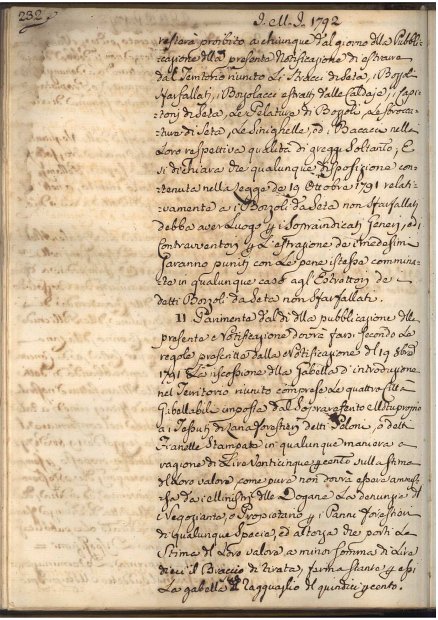 232
J. M. J. 1792
resterà proibito a chiunque dal giorno della Pubbli-
cazione della presente Notificazione di estrarre
dal Territorio riunito Li Stracci di Seta, i Bozzoli
sfarfallati, i Bozzolacci estratti dalle Caldaje, i Capi-
toni di Seta, Le Pelature di Bozzoli, Le Stracca-
ture di Seta, Le Sinighelle, ed i Bacacci nelle
Loro respettive qualità di greggi Soltanto; E
si dichiara che qualunque disposizione con-
tenuta nella Legge de 19 Ottobre 1791 relati-
vamente a i Bozzoli da Seta non sfarfallati
debba aver Luogo per i Sopraindicati Generi, ed i
Contravventori per L'estrazione de i medesimi
saranno puniti con Le pene istesse commina-
te in qualunque caso agl'Estrattori de
detti Bozzoli da Seta non sfarfallati.
11 Parimente dal dì della pubblicazione della
presente Notificazione dovrà farsi secondo Le
regole prescritte dalla Notificazione del 19 8bre
1791 La riscossione della Gabella d'introduzione
nel Territorio riunito comprese Le quattro Città
Gabellabili imposta dal Sopracitato Motuproprio
a i Tessuti di Lana forestieri detti Peloni, o detti
Fianelle Stampate in qualunque maniera a
ragione di Lire Venticinque per cento sulla stima
del Loro valore, come pure non dovrà essere ammes-
sa da i Ministri delle Dogane La denunzia del
Negoziante, o Propietario per i Panni forestieri
di qualunque Specie, ed altresì che porti La
Stima del Loro valore a minor somma di Lire
dieci il Braccio di tirata, ferma stante per essi
La gabella al ragguaglio del quindici per cento.